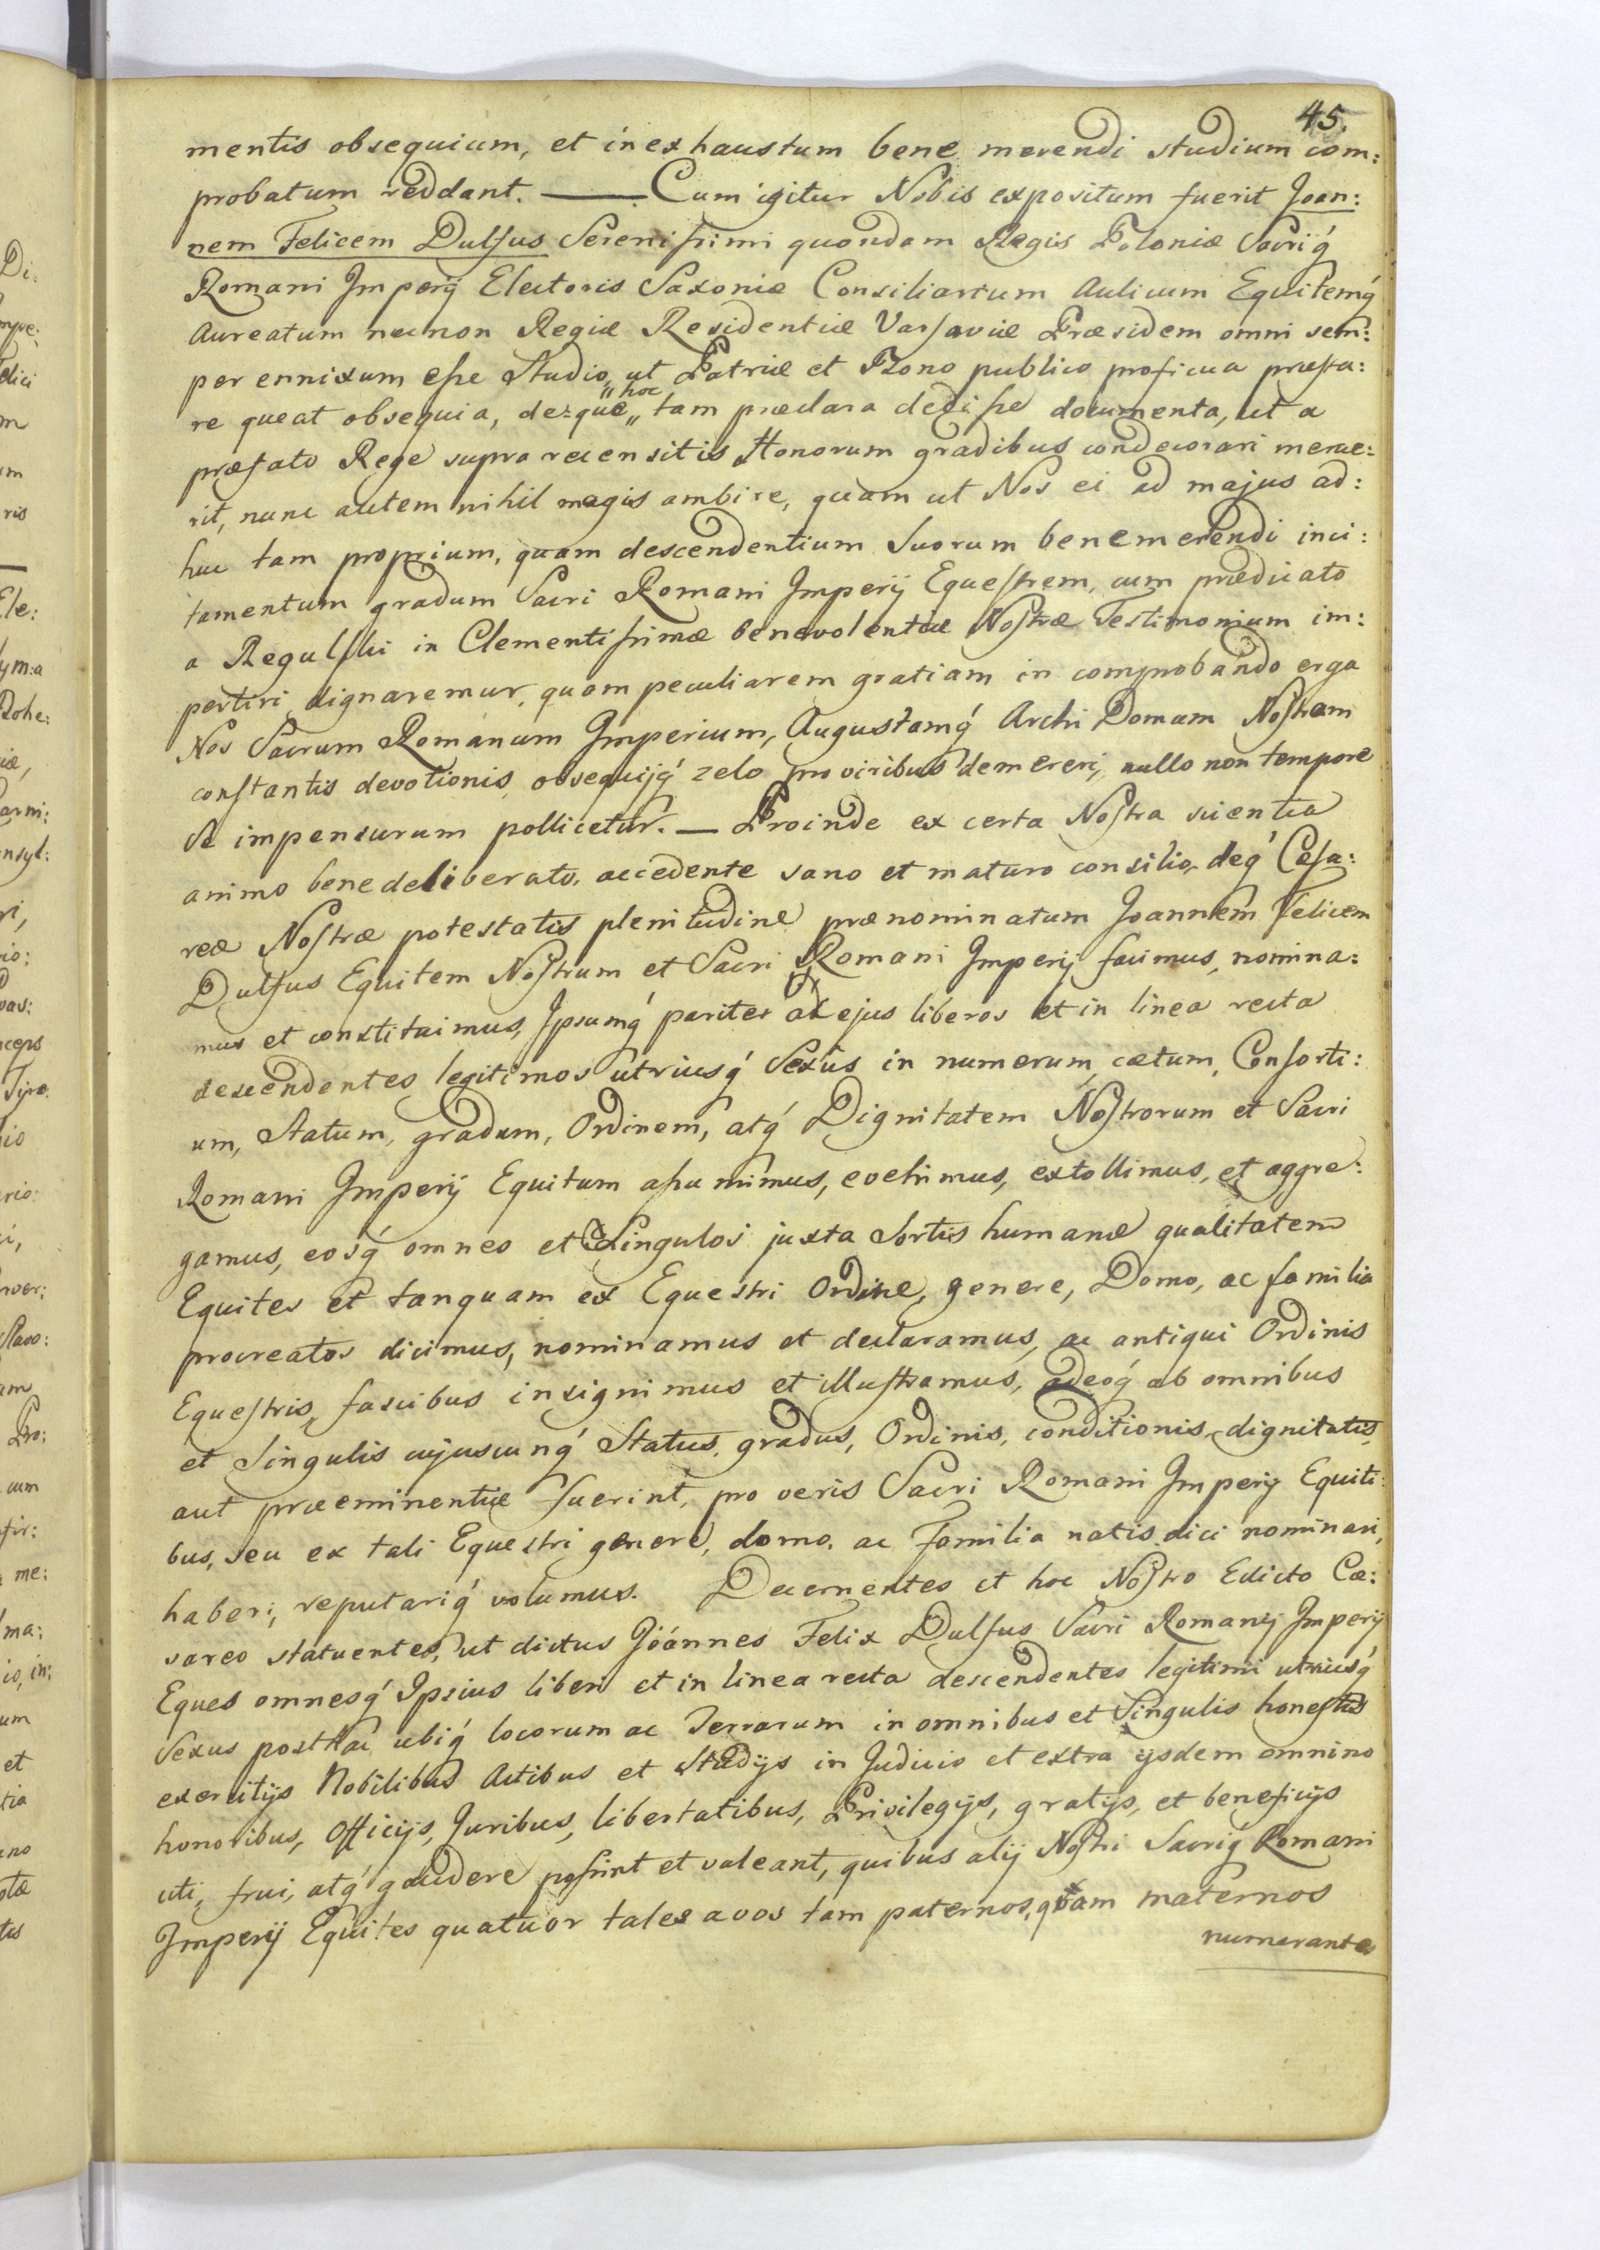 45.
mentis obsequium, et inexhaustum bene merendi studium com:
probatum reddant. — Cum igitur Nobis expositum fuerit Joan:
nem Felicem Dulfus Serenissimi quondam Regis Poloniæ Sacriq́
Romani Imperij Electoris Saxoniæ Consiliarium Aulicum Equitemq́
Aureatum necnon Regiæ Residentiæ Varsaviæ Præsidem omni sem:
per ennixum esse Studio, ut Patriæ et Bono publico proficua præsta:
re queat obsequia, de=que „hoc„ tam præclara dedisse documenta, ut a
præfato Rege supra recensitis Honorum gradibus condecorari merue:
rit, nunc autem nihil magis ambire, quam ut Nos ei ad majus ad:
huc tam proprium, quam descendentium Suorum benemerendi inci:
tamentum gradum Sacri Romani Imperij Equestrem, cum prædicato
a Regulski in Clementissimæ benevolentiæ Nostræ Testimonium im:
pertiri dignaremur, quam peculiarem gratiam in comprobando erga
Nos Sacrum Romanum Imperium, Augustamq́ Archi Domum Nostram
constantis devotionis, obsequijq́ zelo pro viribus demereri, nullo non tempore
Se impensurum pollicetur. — Proinde ex certa Nostra scientia
animo bene deliberato, accedente sano et maturo consilio, deq́ Cæsa:
reæ Nostræ potestatis plenitudine prænominatum Joannem Felicem
Dulfus Equitem Nostrum et Sacri Romani Imperij facimus, nomina:
mus et constituimus, Ipsumq́ pariter ac ejus liberos et in linea recta
descendentes legitimos utriusq́ Sexus in numerum, cætum, Consorti:
um, Statum, gradum, Ordinem, atq́ Dignitatem Nostrorum et Sacri
Romani Imperij Equitum assumimus, evehimus, extollimus, et aggre:
gamus, eosq́ omnes et Singulos juxta Sortis humanæ qualitatem
Equites et tanquam ex Equestri Ordine, genere, Domo, ac familia
procreatos dicimus, nominamus et declaramus, ac antiqui Ordinis
Equestris, fascibus insignimus et illustramus, adeoq́ ab omnibus
et Singulis cujuscunq́ Status, gradus, Ordinis, conditionis, dignitatis,
aut præeminentiæ fuerint, pro veris Sacri Romani Imperij Equiti:
bus, seu ex tali Equestri genere, domo, ac Familia natis dici nominari,
haberi, reputariq́ volumus. Decernentes et hoc Nostro Edicto Cæ:
sareo statuentes, ut dictus Joannes Felix Dulfus Sacri Romanij Imperij
Eques omnesq́ Ipsius liberi et in linea recta descendentes legitimi utriusq́
Sexus posthac ubiq́ locorum ac Terrarum in omnibus et Singulis honestis
exercitijs Nobilibus Actibus et Studijs in Judicio et extra ijsdem omnino
honoribus, Officijs, Juribus, libertatibus, Privilegijs, gratijs, et beneficijs
uti, frui, atq́ gaudere possint et valeant, quibus alij Nostri Sacriq́ Romani
Imperij Equites quatuor tales avos tam paternos, quam maternos
numerantes